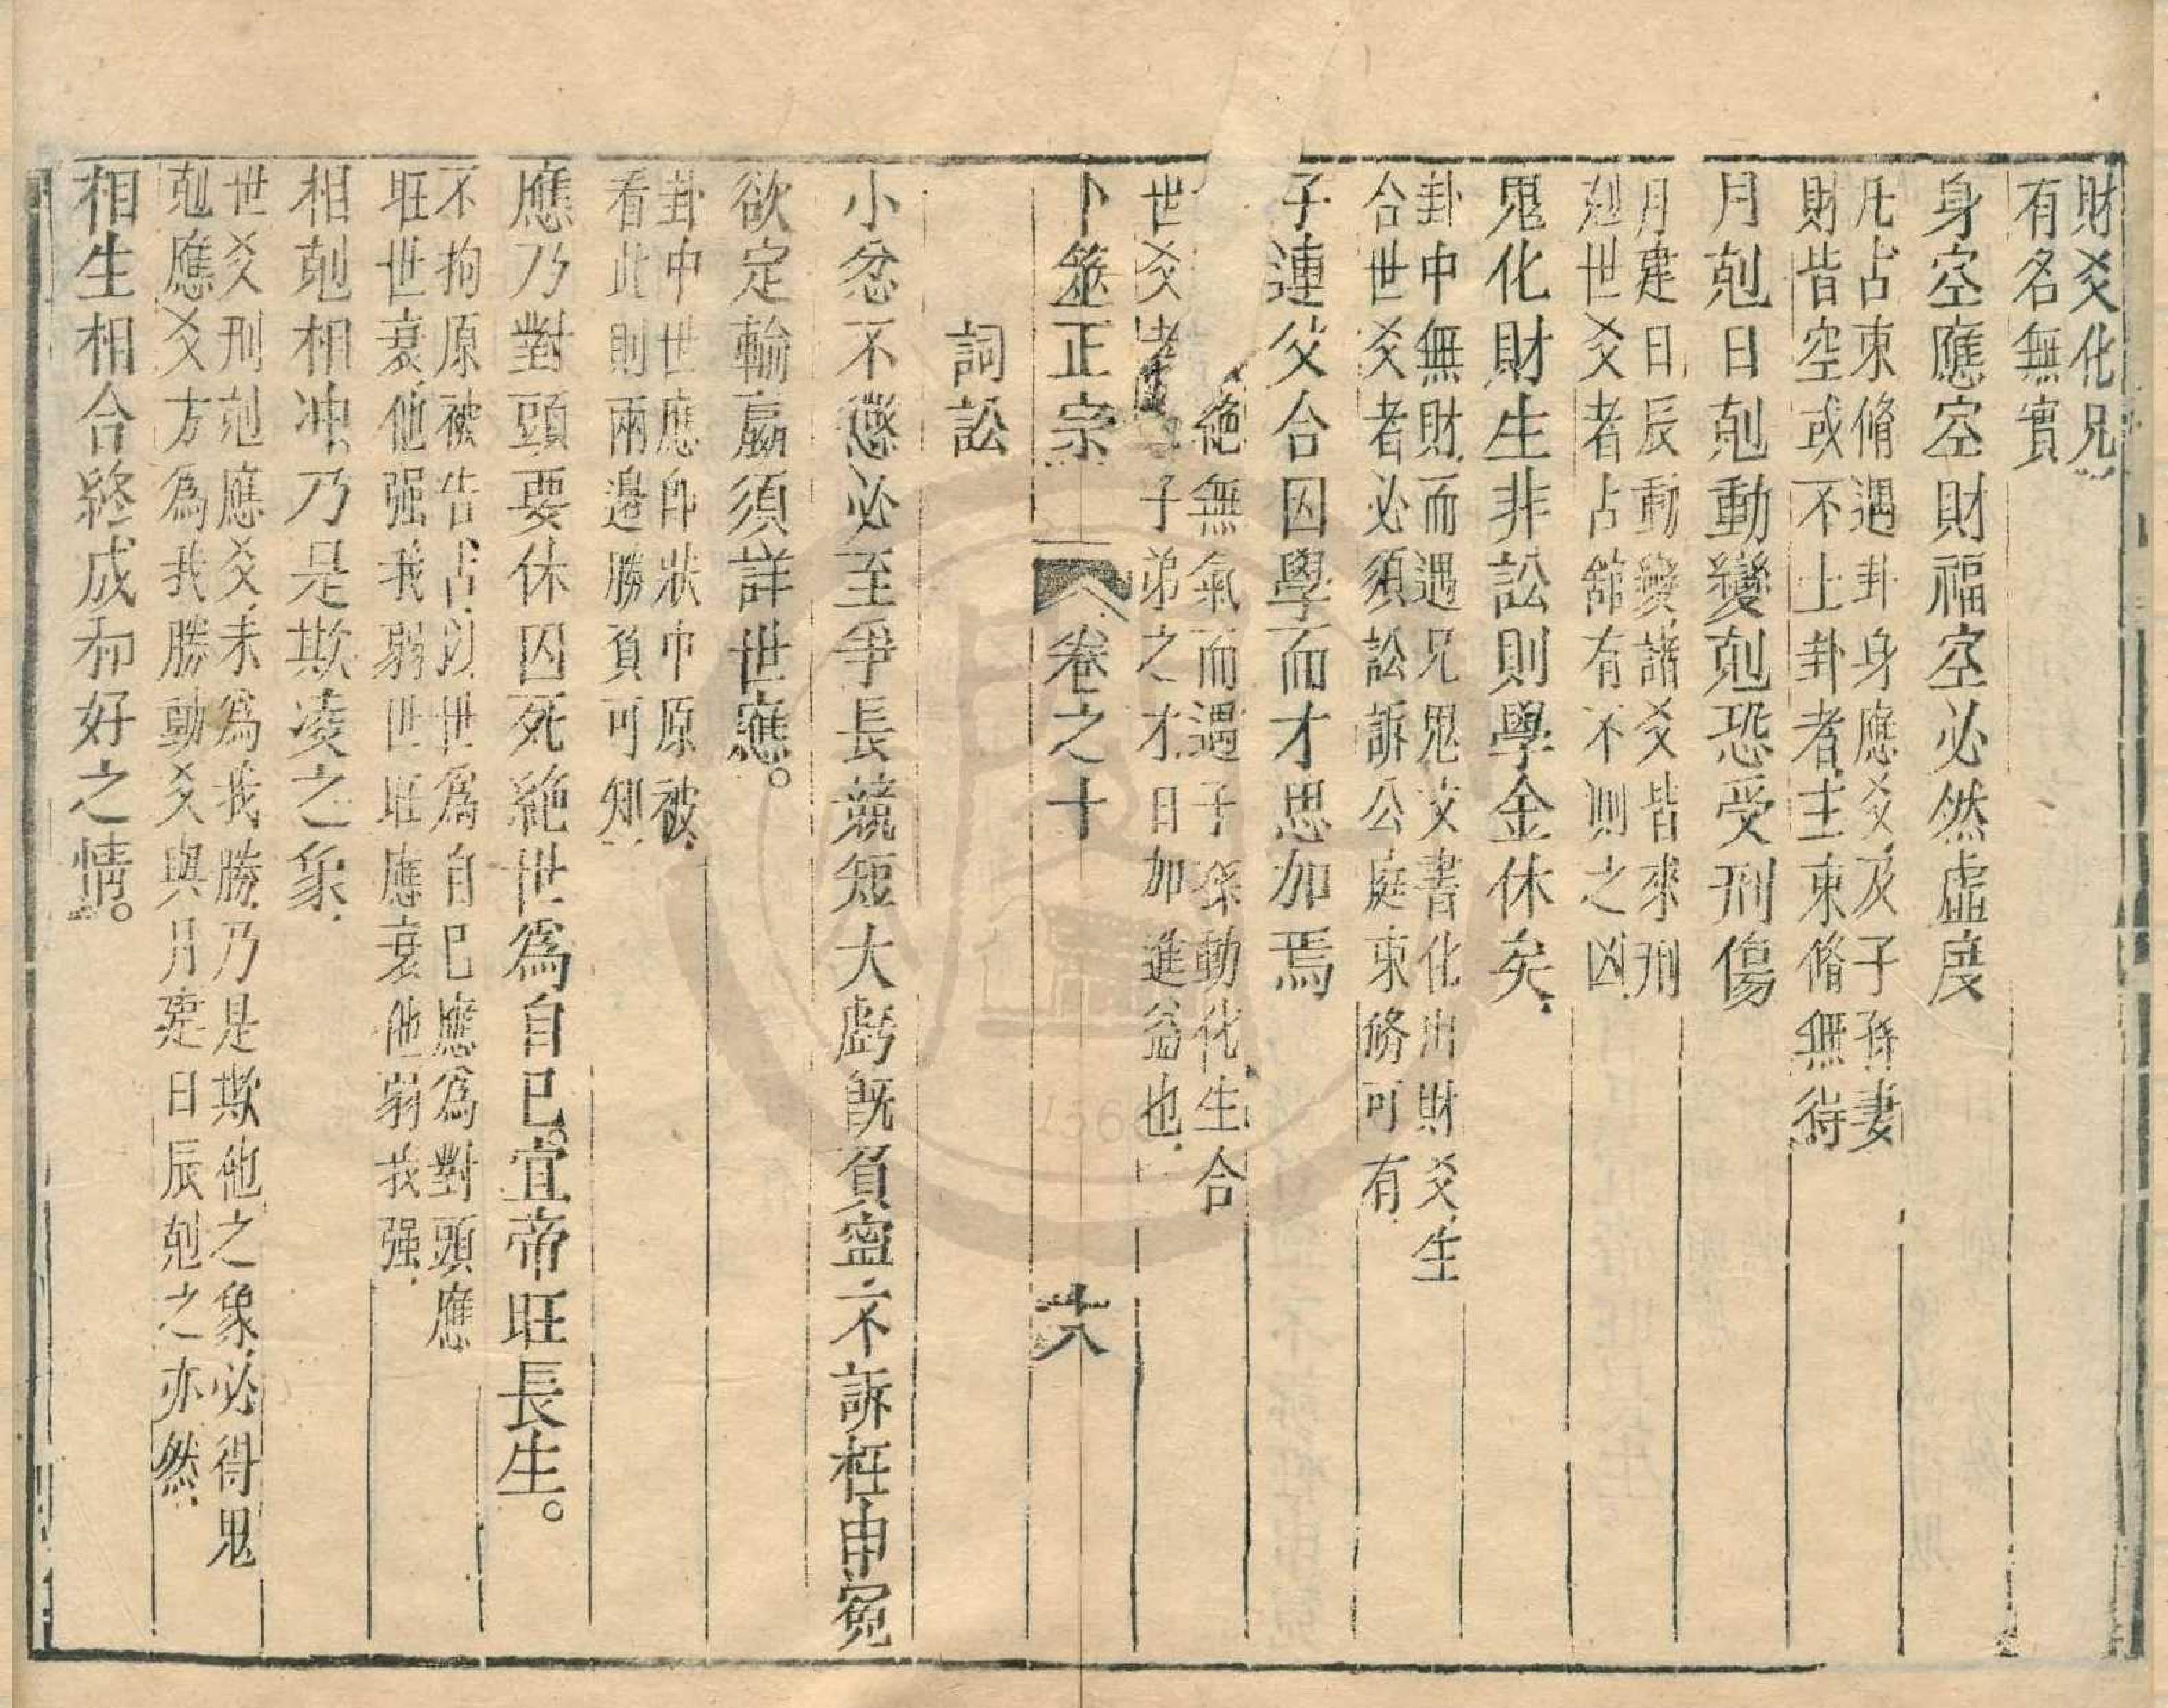 財爻化兄
有名無實
身空應空財福空必然虛度
凡占束脩遇卦身應爻及子孫妻
財皆空或不上卦者主束脩無得
月剋日剋動變剋恐受刑傷
月建日辰動變諸爻皆來刑
剋世爻者占館有不測之凶
鬼化財生非訟則學金休矣
卦中無財而遇兄鬼父書化出財爻生
合世爻者必須訟訴公庭束脩可有
子連父合因學而才思加焉
絶無氣而遇子孫動化生合
世爻者子弟之才日加進益也
卜筮正宗 卷之十 十八
詞訟
小忿不懲必至爭長競短大虧旣負寧不訴枉申冤
欲定輸嬴須詳世應。
卦中世應卽狀中原被
看此則兩邊勝負可知
應乃對頭要休囚死絶世爲自己。宜帝旺長生。
不拘原被告占以世爲自己應爲對頭應
旺世衰他强我弱世旺應衰他弱我强
相剋相冲乃是欺凌之象
世爻刑剋應爻未爲我勝乃是欺他之象必得鬼
剋應爻方為我勝動爻與月建日辰剋之亦然
相生相合終成和好之情。